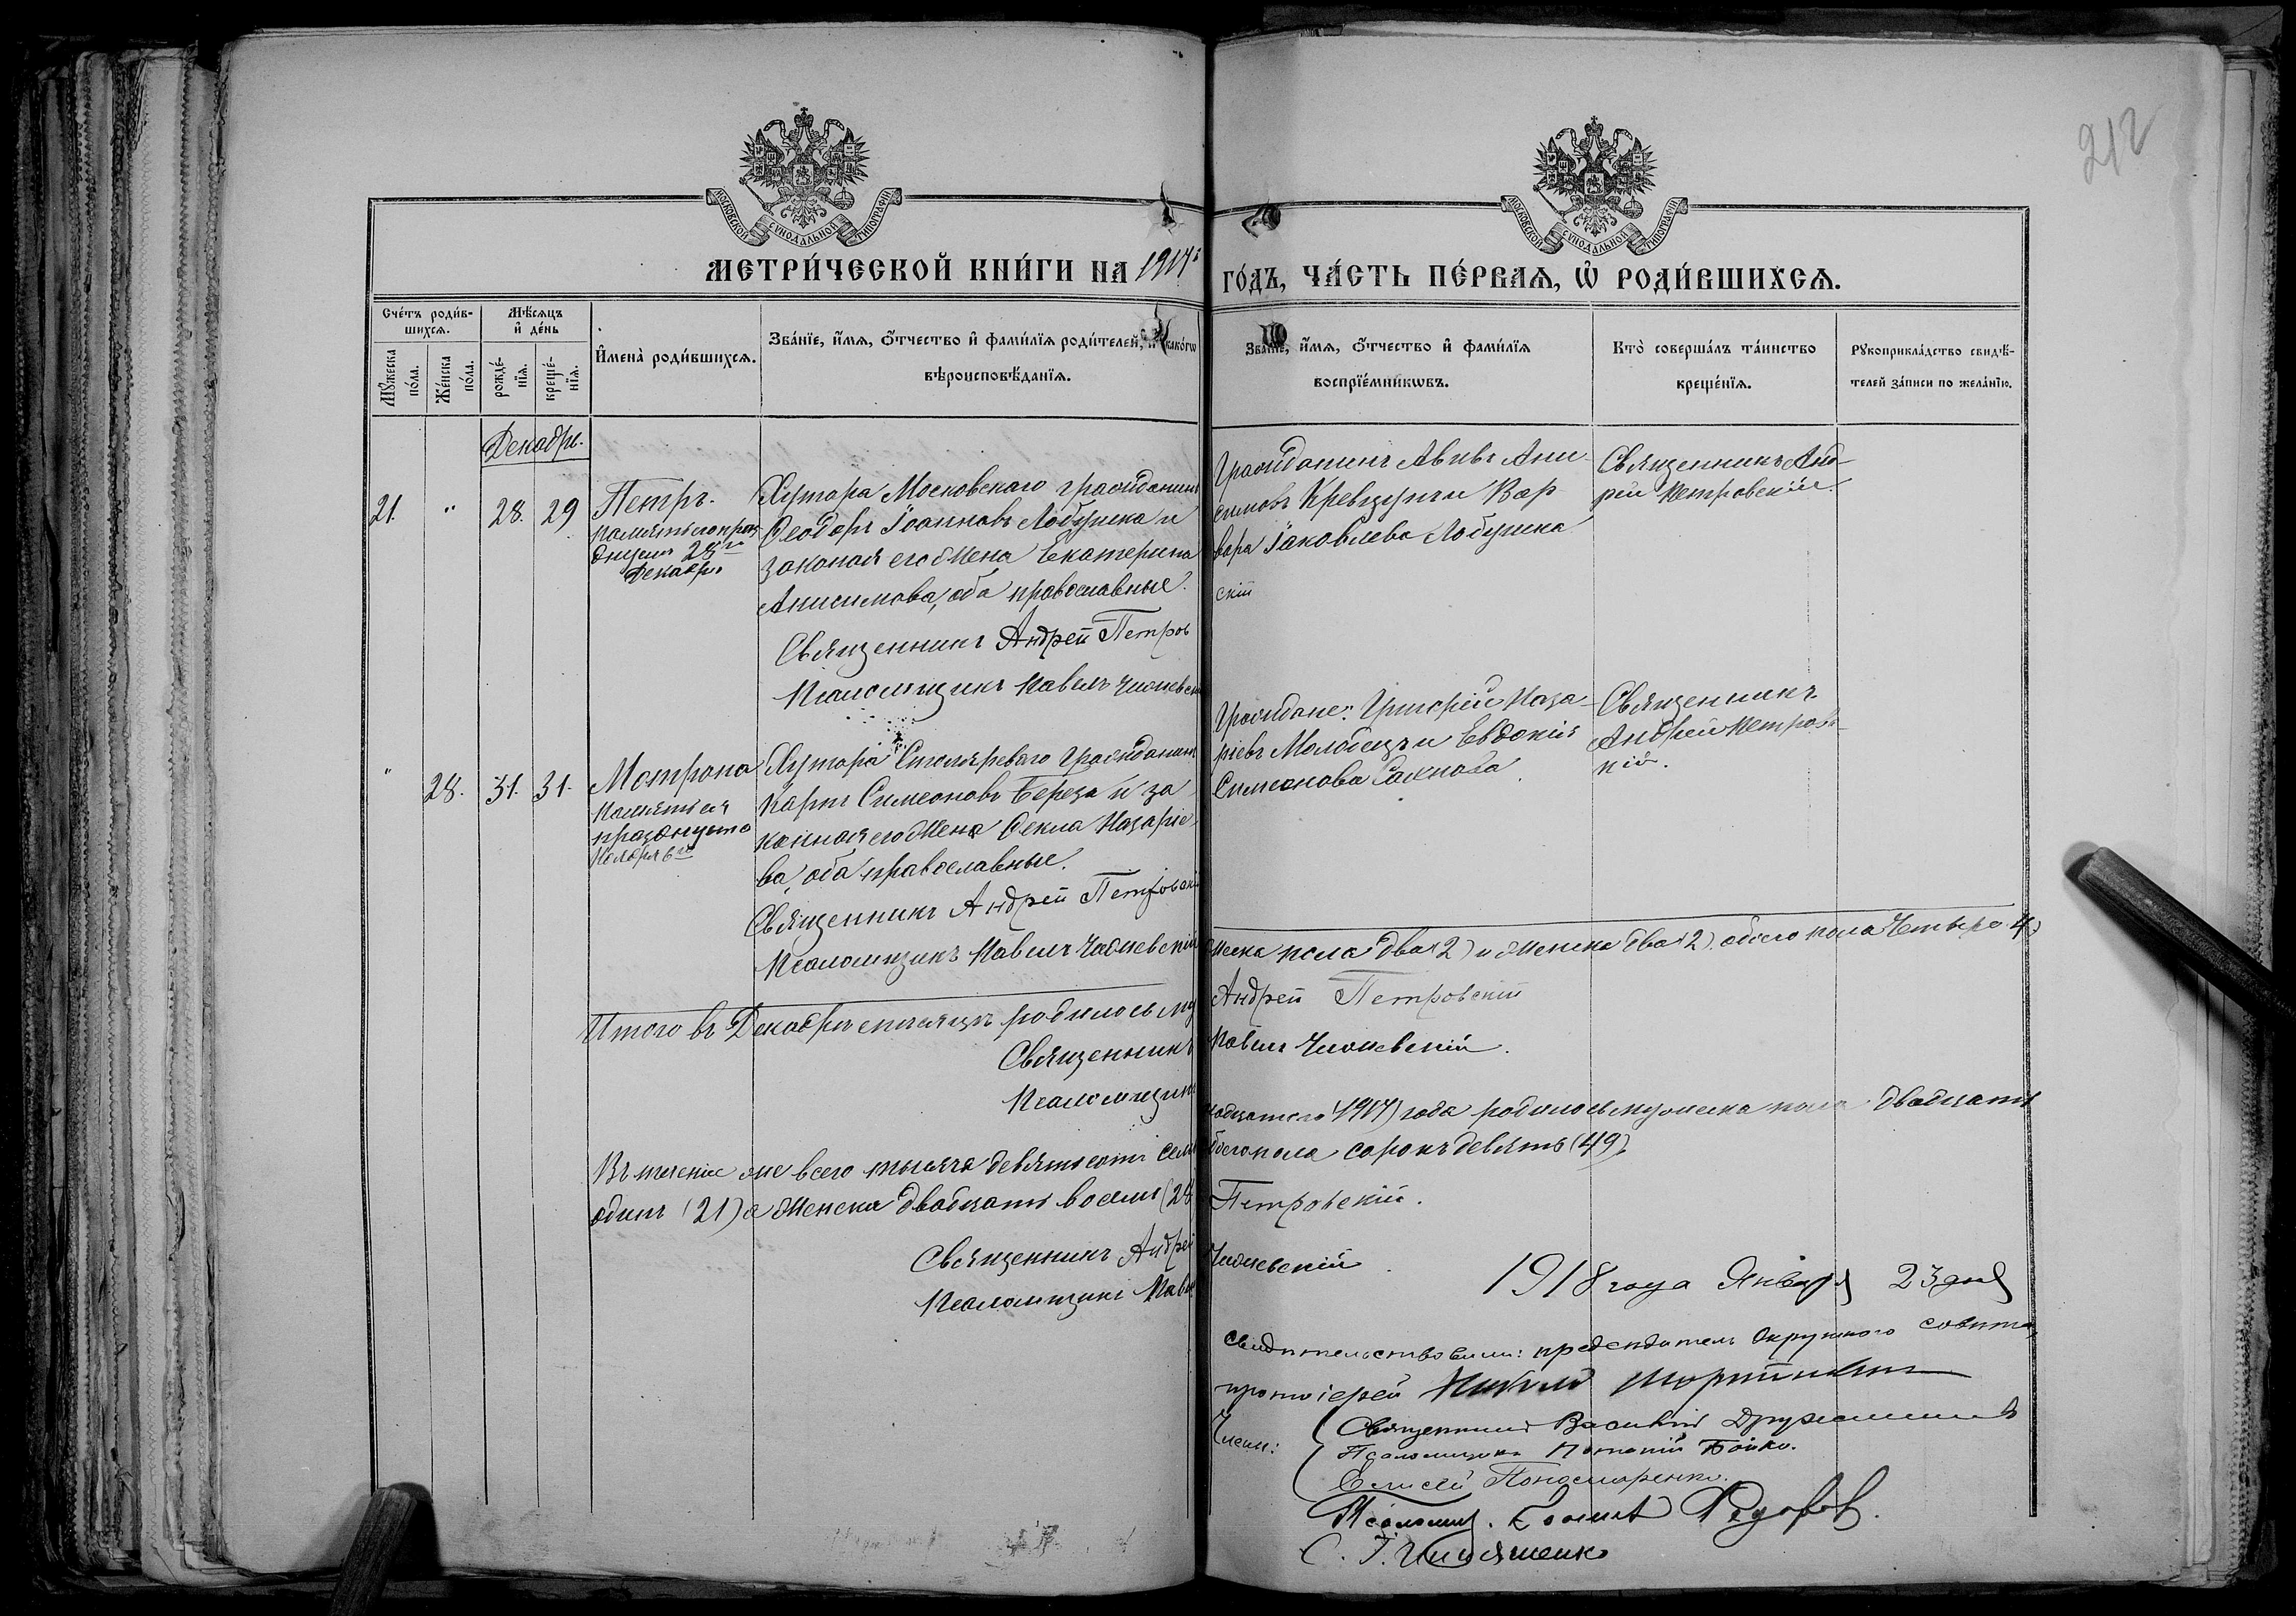 212
МОСКОВСКОЙ СУНОДАЛЬНОЙ ТИПОГРАФІИ
МОСКОВСКОЙ СУНОДАЛЬНОЙ ТИПОГРАФІИ
МЕТРИ́ЧЕСКОЙ КНИ́ГИ НА 1917 г
ГО́ДЪ, ЧА́СТЬ ПЕ́РВАѦ, Ѡ РОДИ́ВШИХСѦ.
Сче́тъ роди́в-
шихсѧ.
Мꙋ́жеска по́ла.
Же́нска по́ла.
Мѣ́сѧцъ и де́нь
рожде́-нїѧ.
креще́-нїѧ.
И҆мена̀ роди́вшихсѧ.
Зва́нїе, и҆́мѧ, ѻ҆́тчество и҆ фами́лїѧ роди́телей, и҆ како́гѡ
вѣроисповѣ́данїѧ.
Зва́нїе, и҆́мѧ, ѻ҆́тчество и҆ фами́лїѧ
воспрїе́мникѡвъ.
Кто̀ соверша́лъ та́инство
креще́нїѧ.
Рꙋкоприкла́дство свидѣ́-
телей за́писи по жела́нїю.
Декабрь.
21. " 28. 29
Петръ.
память его праз
днуем 28го
Декабря
Хутора Московскаго гражданинъ
Ѳеодоръ Іоанновъ Лобушка и
законая его жена Екатерина
Анисимова, оба православные.
Священникъ Андрей Петров
Псаломщикъ Павелъ Чижевск
Гражданинъ Авивъ Ани-
симовъ Кревцунъ и Вар-
вара Іаковлева Лобушка
скій
Священникъ Анд-
рей Петровскій.
" 28. 31. 31.
Мотрона
Память ея
празднуется
Ноября 6го
Хутора Столяреваго Гражданинъ
Карпъ Симеоновъ Береза и за
конная его жена Ѳекла Назаріе
ва, оба православные.
Священникъ Андрей Петровскі
Псаломщикъ Павелъ Чижевскій
Граждане: Григорій Наза-
ріевъ Молодецъ и Евдокія
Симеонова
Священникъ
Андрей Петровс-
кій.
Итого въ Декабрѣ мѣсяцѣ родилось му
жеска пола два (2) и женска два (2), обоего пола Четыре 4)
Священникъ Андрей Петровскій
Псаломщикъ Павелъ Чижевскій.
Въ теченіе же всего тысяча девятьсотъ семн
надцатого (1917) года родилось мужеска пола двадцать
одинъ (21) а женска двадцать восемь (28
обоего пола сорокъ девять (49).
Священникъ Андрей Петровскій.
Псаломщикъ Паве Чижевскій
1918 года Января 23 дня
Свидѣтельствовали: предсѣдатель Окружного совѣта,
протоіерей
Члены: Священникъ Василій
Псаломщикъ Бойко.
Елисей Пономаренко.
Псаломщ. Федоров.